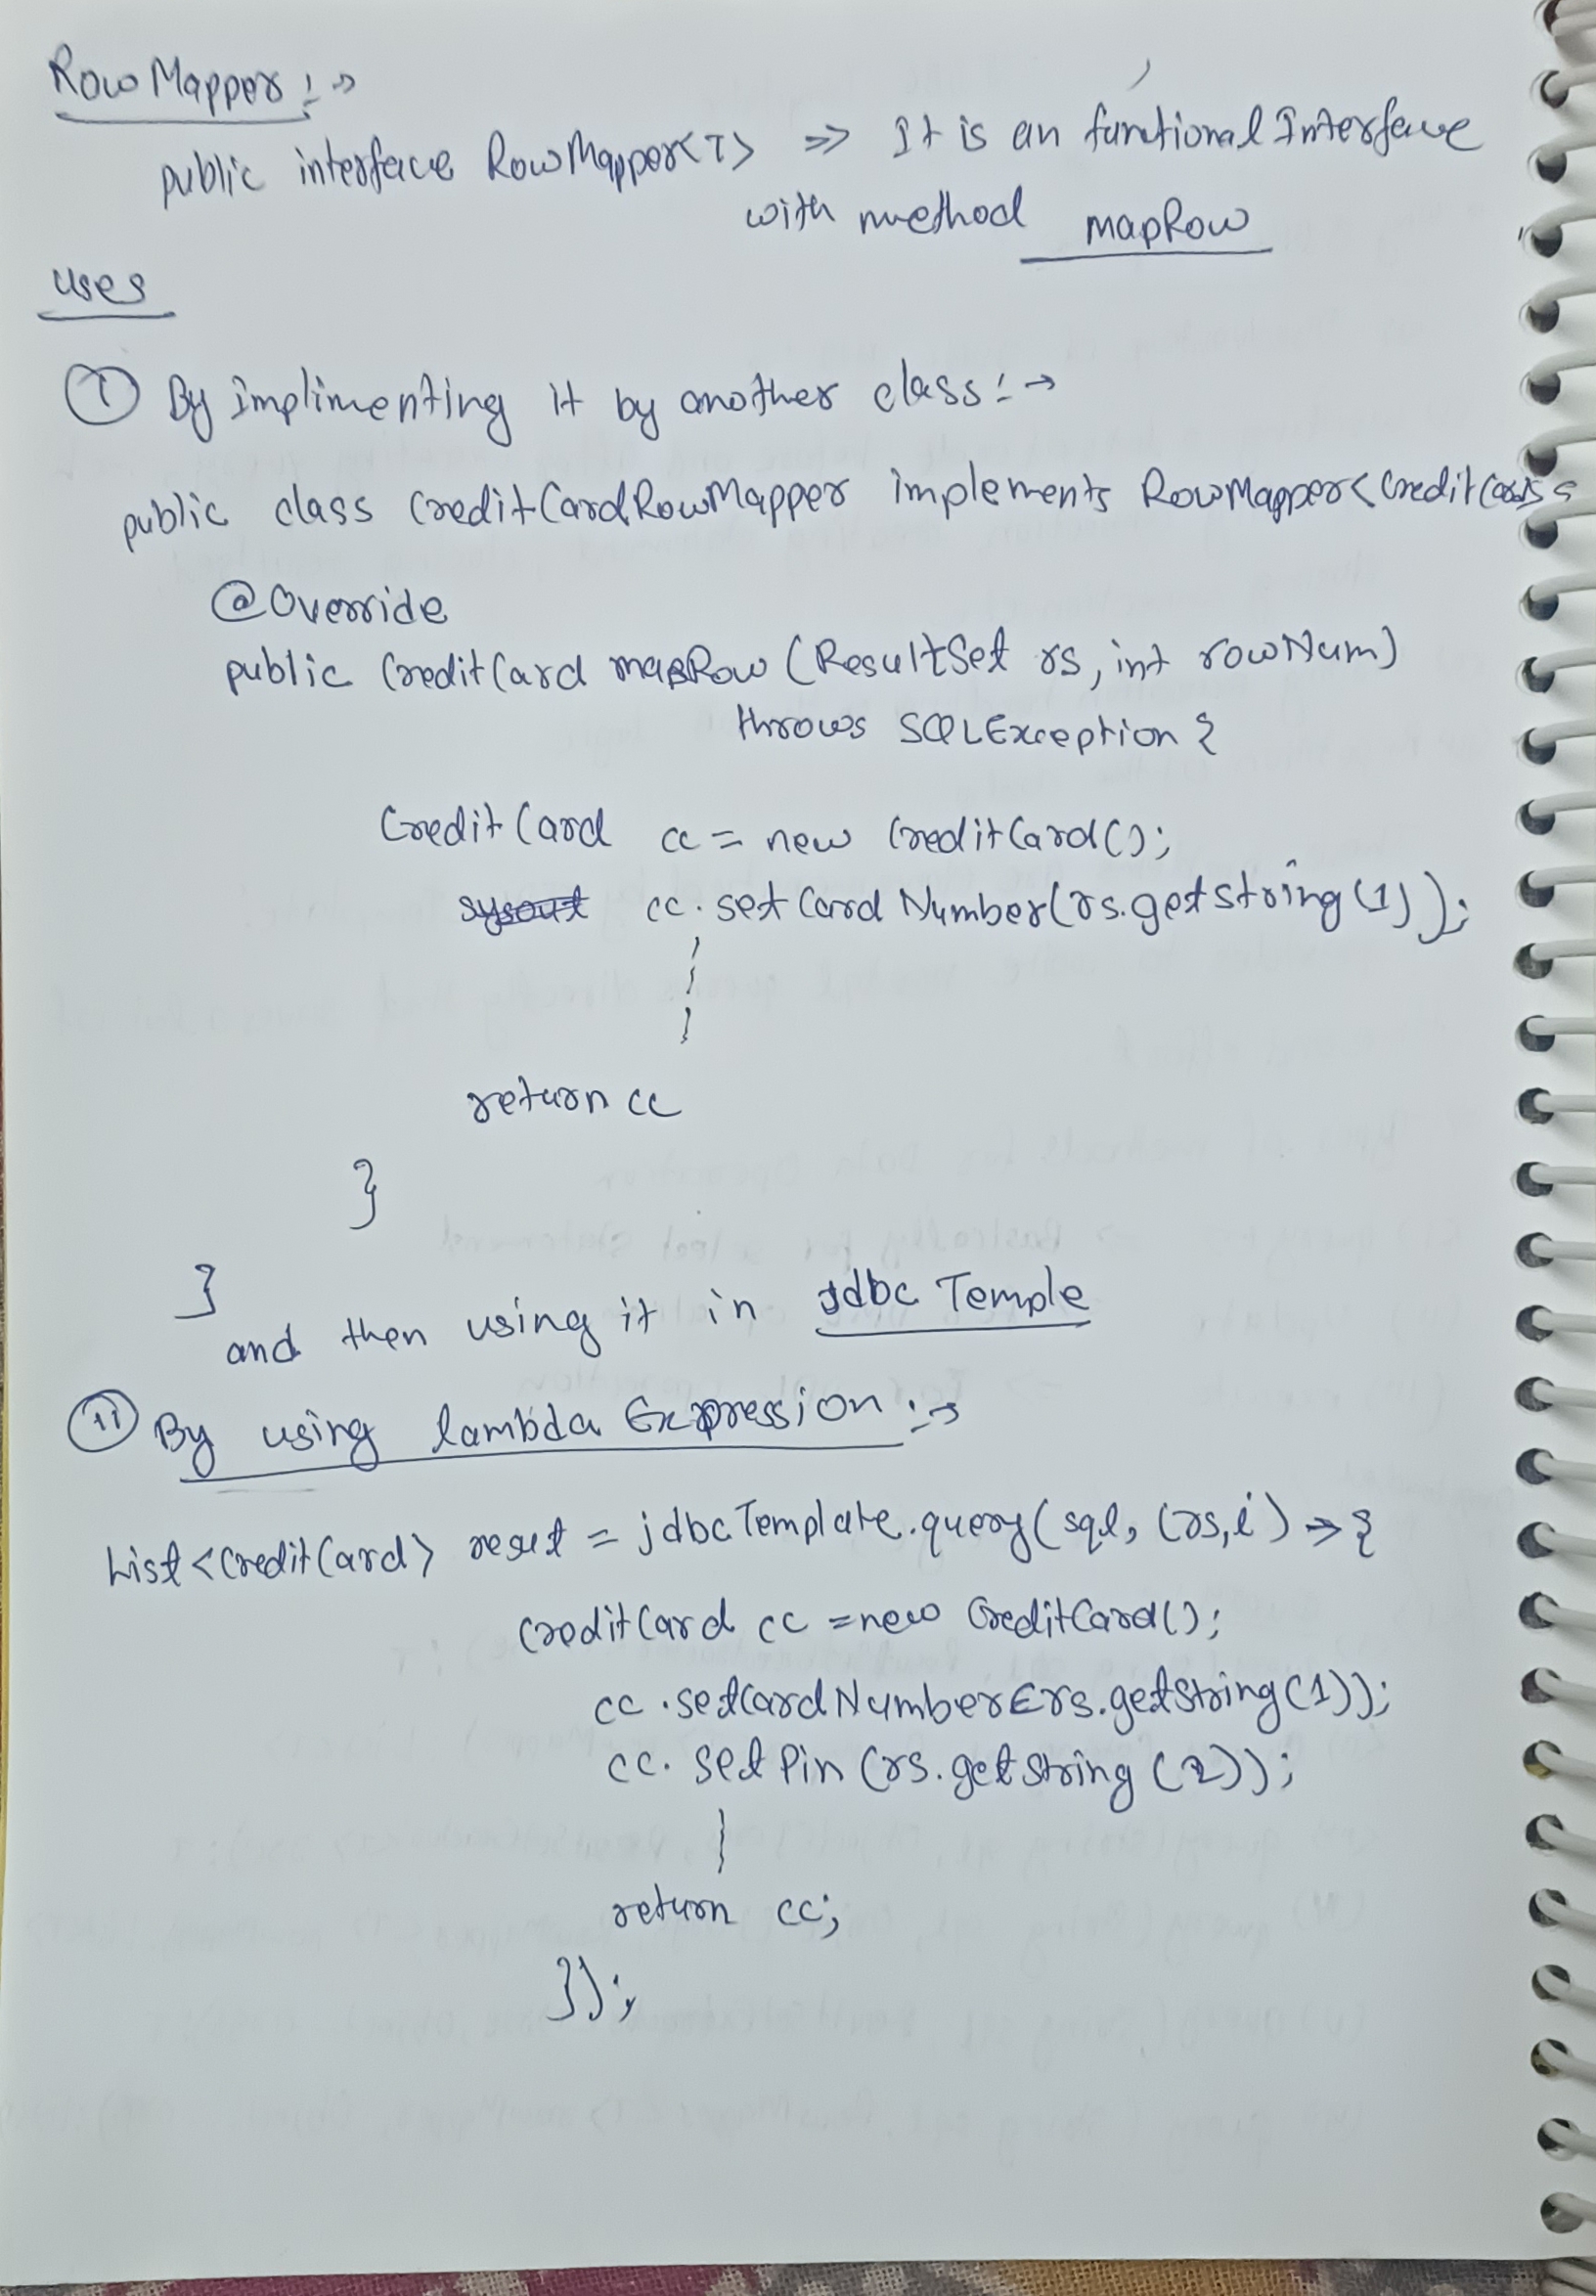 RowMapper :->
public interface RowMapper<T> => It is an functional Interface
with method mapRow
Uses
(I) By Implimenting it by another class :->
public class CreditCardRowMapper implements RowMapper<CreditCard> {
@Override
public CreditCard mapRow (ResultSet rs, int rowNum)
throws SQLException {
CreditCard cc = new CreditCard();
sysout cc.setCardNumber(rs.getString(1));
return cc
}
}
and then using it in Jdbc Temple
(ii) By using lambda Expression :->
List<CreditCard> result = jdbcTemplate.query(sql, (rs,i) => {
CreditCard cc = new CreditCard();
cc.setCardNumber(rs.getString(1));
cc.setPin(rs.getString(2));
return cc;
});